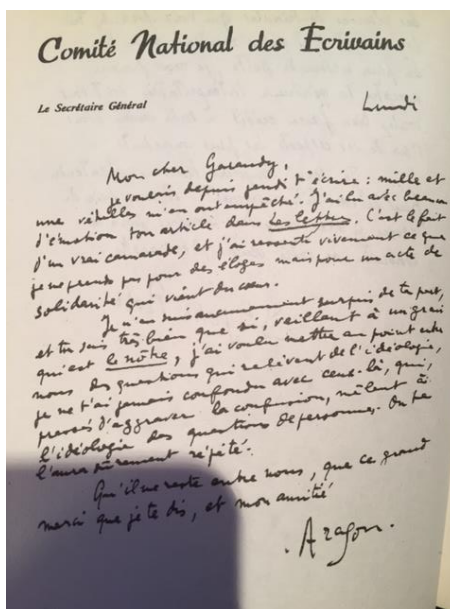 Comité National des Ecrivains
Le Secrétaire Général
Lundi
Mon cher Garaudy,
je voulais depuis jeudi t'écrire : mille et
une vétilles m'en ont empêché. J'ai lu avec beaucoup
d'émotion ton article dans Les Lettres. C'est le fait
d'un vrai camarade, et j'ai ressenti vivement ce que
je ne prends pas pour des éloges mais pour un acte de
solidarité qui vient du cœur.
Je n'en suis aucunement surpris de ta part,
et tu sais très bien que si, veillant à un grain
qui est le nôtre, j'ai voulu mettre au point entre
nous des questions qui relèvent de l'idéologie,
je ne t'ai jamais confondu avec ceux-là, qui,
pressés d'aggraver la confusion, mêlent à
l'idéologie des questions de personnes. On te
l'aura sûrement répété.
Qu'il ne reste entre nous, que ce grand
merci que je te dis, et mon amitié
. Aragon .